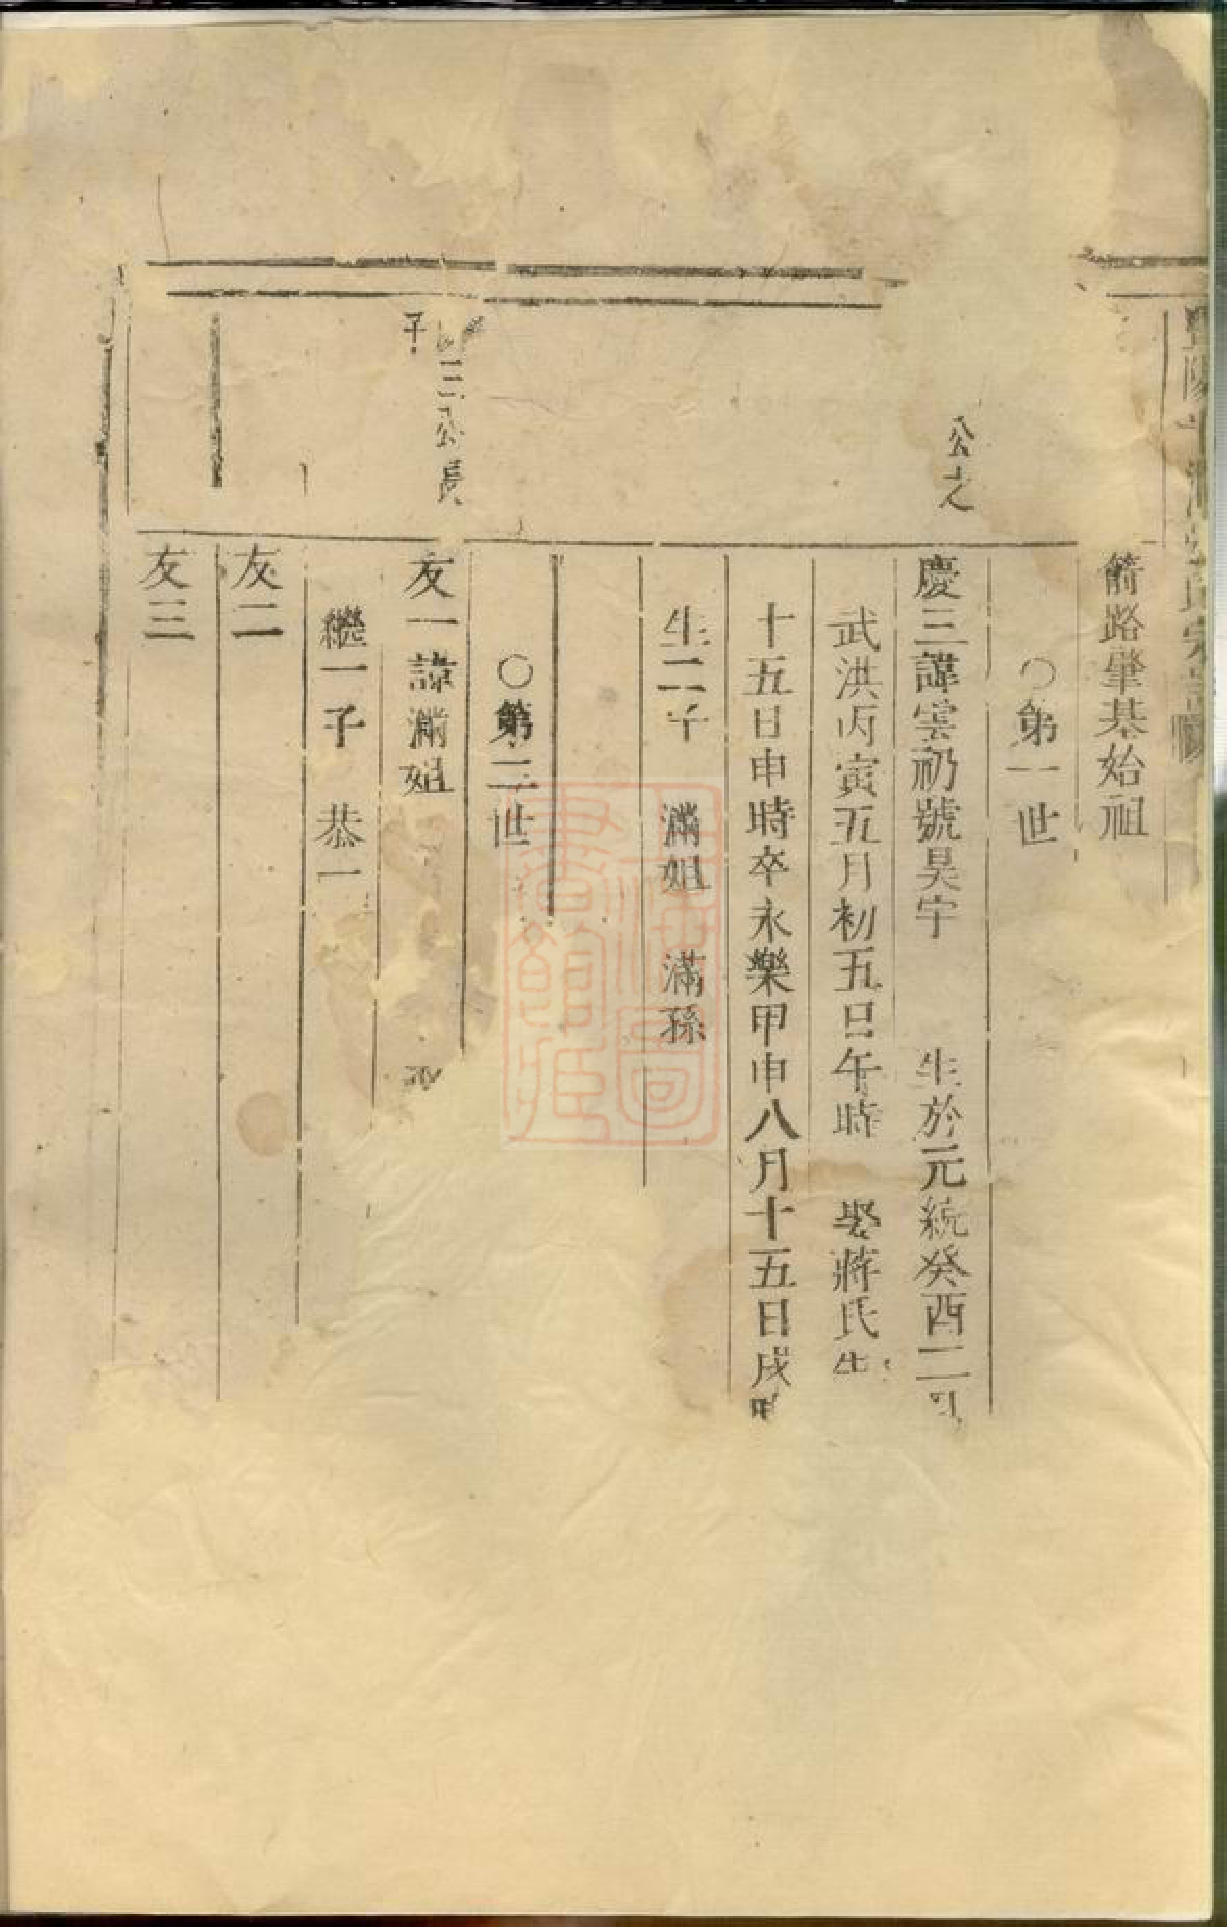 暨陽
箭路肇基始祖
○第一世
公之
慶三諱雲礽號昊宇 生於元統癸酉二月
武洪丙寅五月初五日午時 娶蔣氏生
十五日申時卒永樂甲申八月十五日戌時
生二子 滿姐 滿孫
○第二世
三公長
子
友一諱滿姐
繼一子 恭一
友二
友三